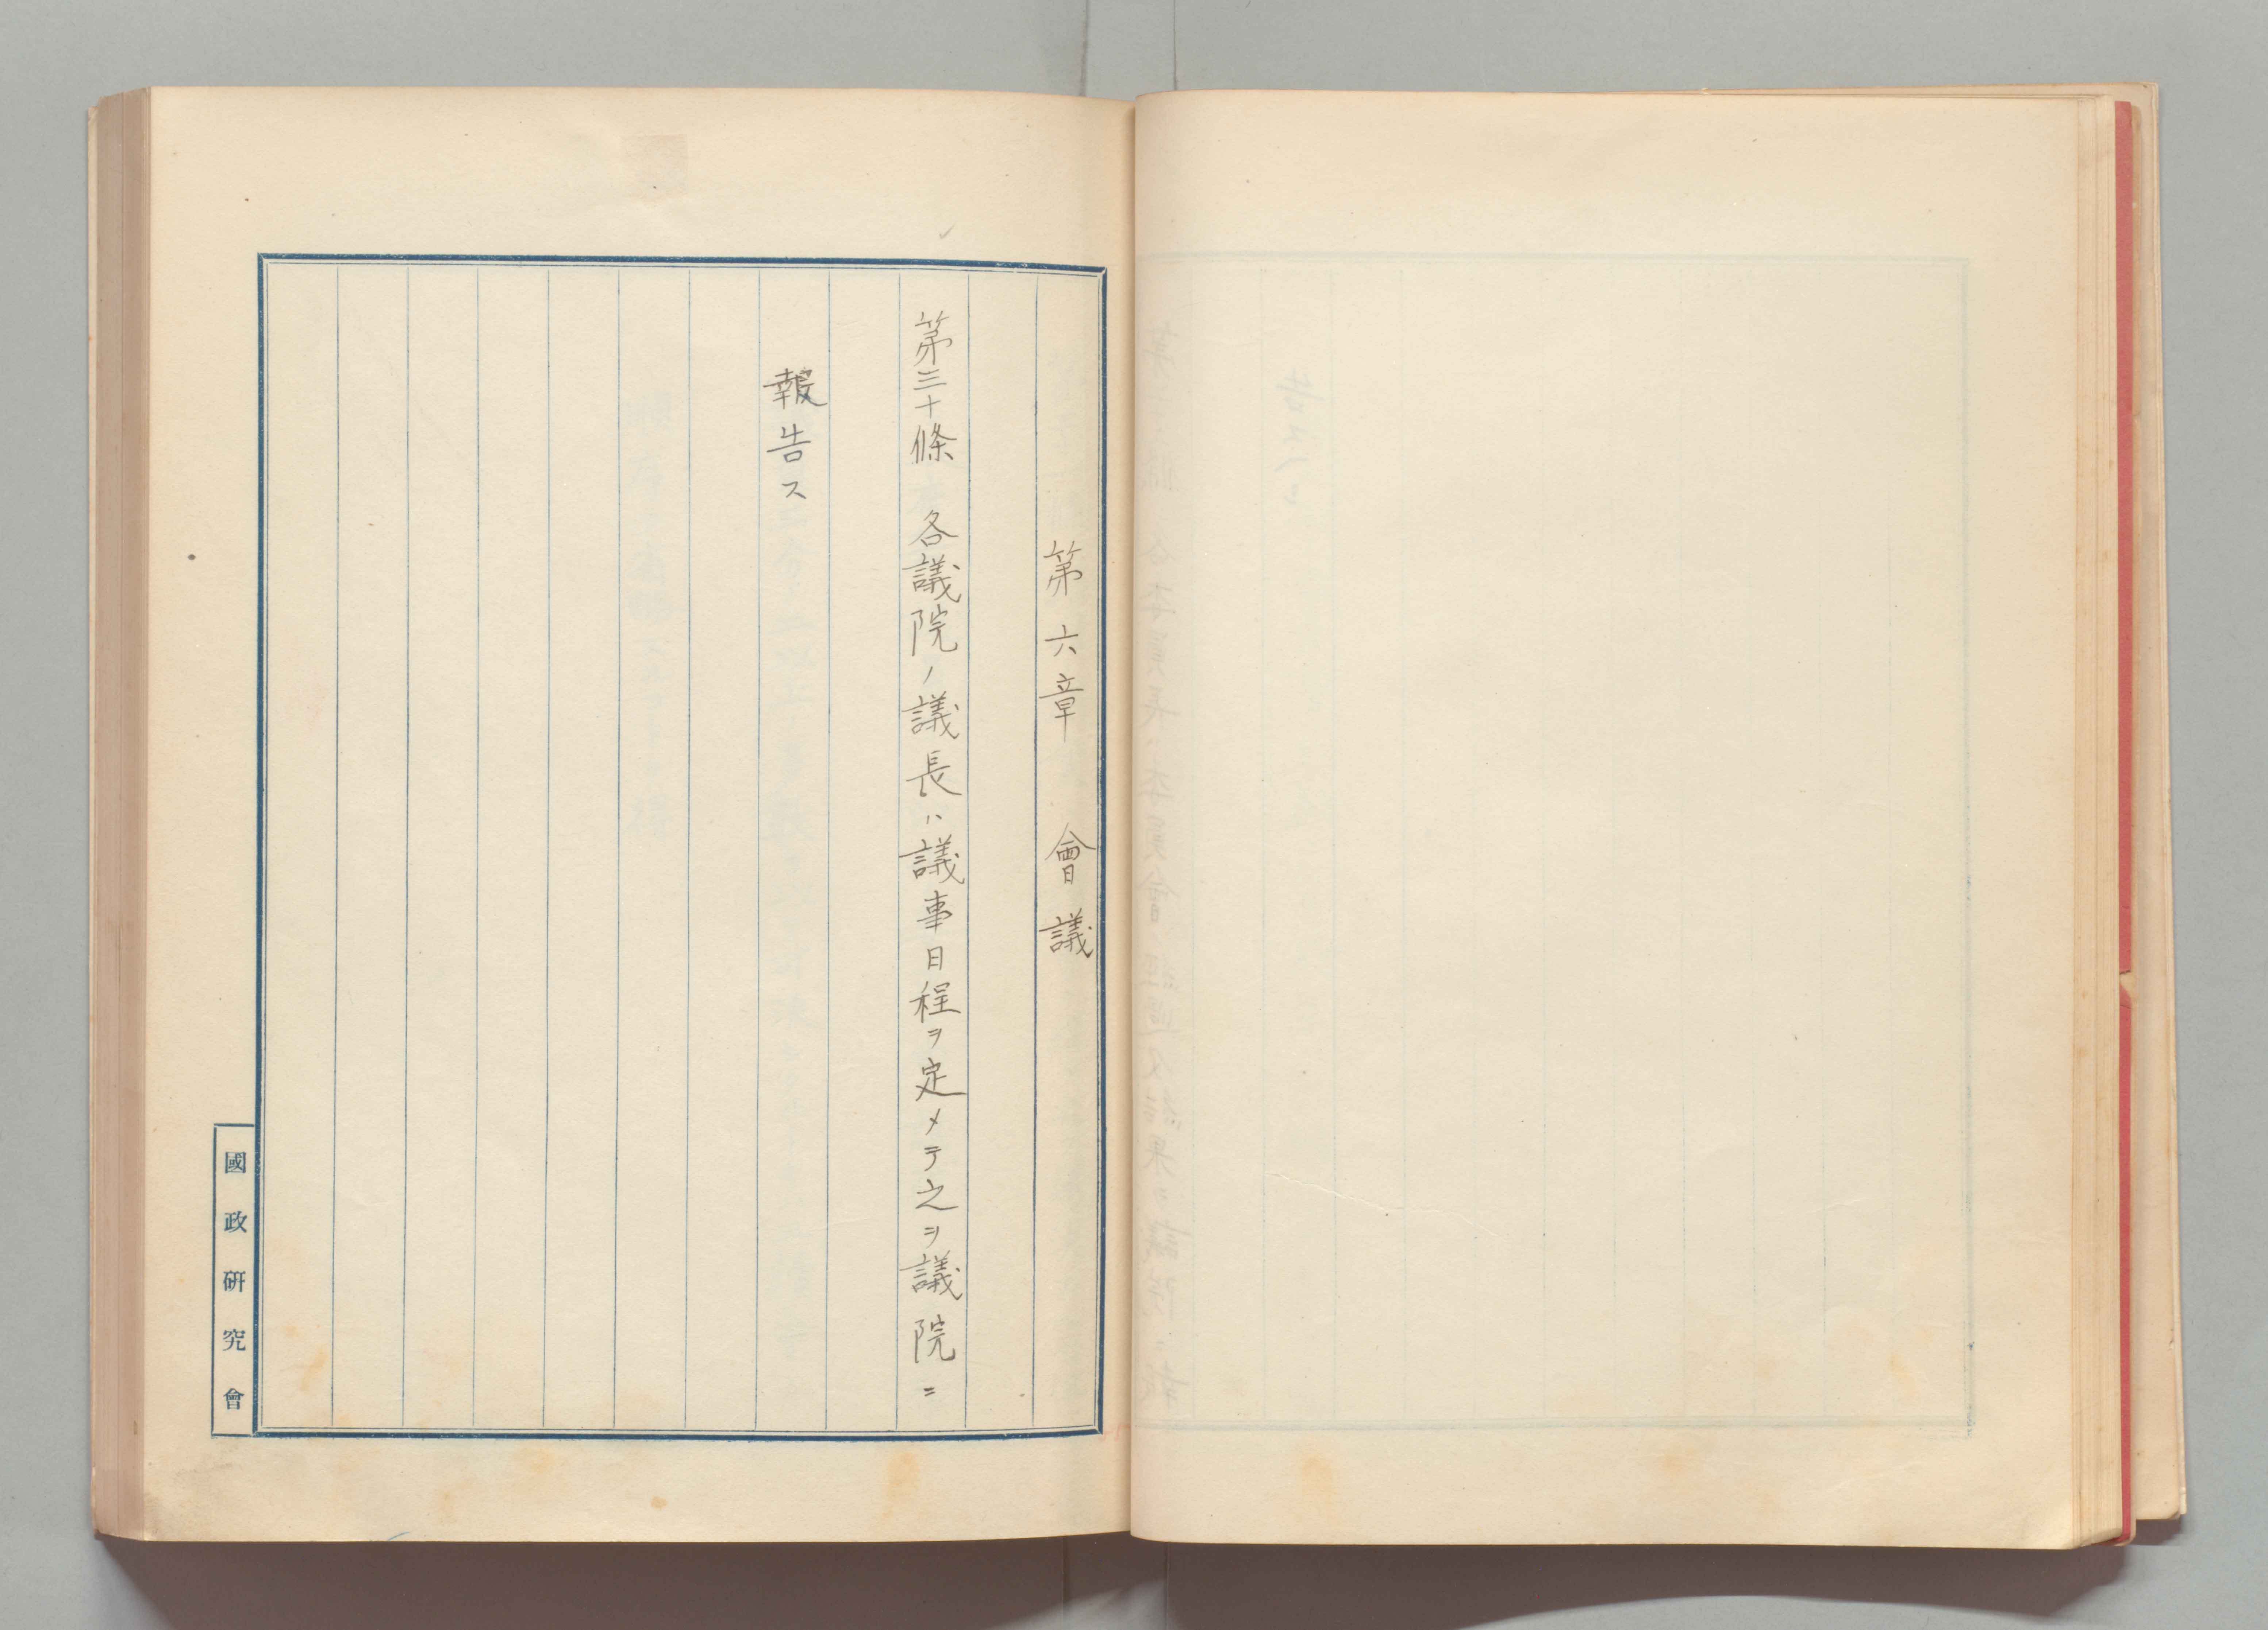 第六章 會議
第三十條 各議院ノ議長ハ議事日程ヲ定メテ之ヲ議院ニ
報告ス
國政硏究會